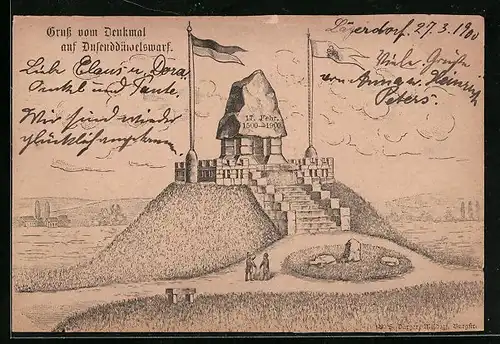 Gruß vom Denkmal
auf Dusenddüwelswarf.
Lägerdorf. 27.3.1900
Liebe Claus u. Dora
Onkel und Tante.
Wir sind wieder
glücklich angekommen
Viele Grüße
von Anna u. Heinrich
Peters.
17. Febr.
1500 – 1900